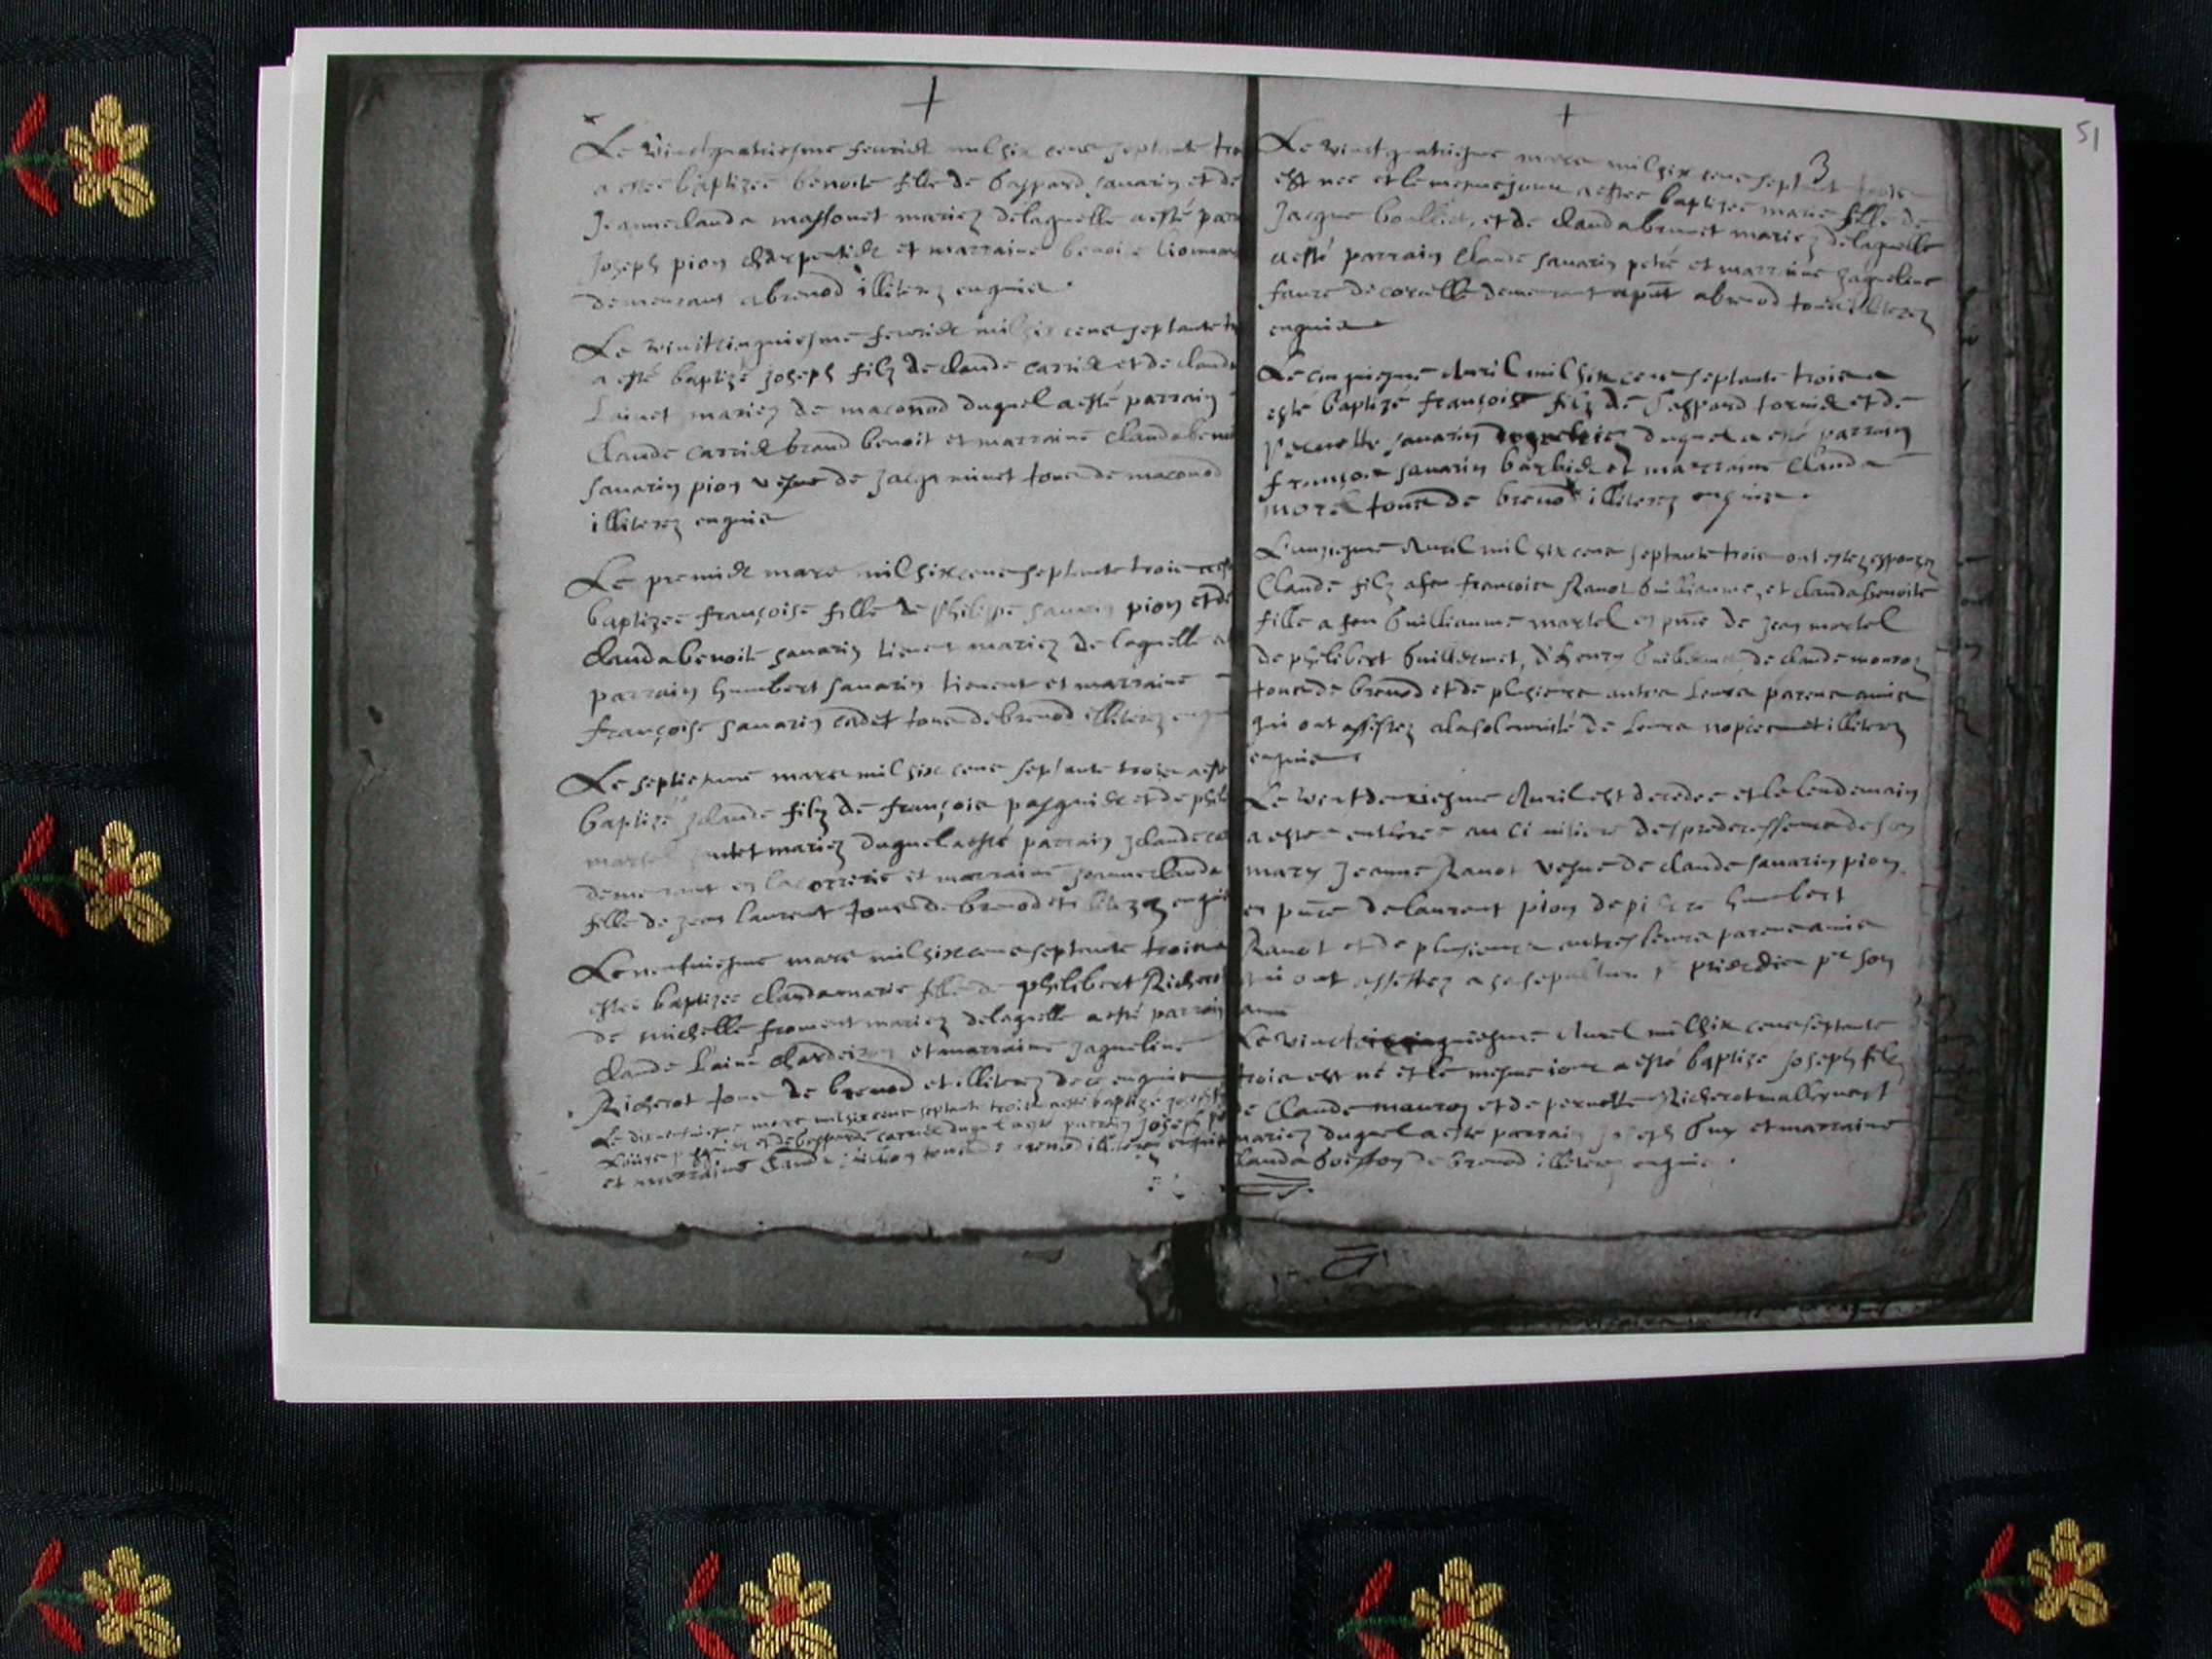 Le vingtquatriesme feurier mil six cens septante troi
a estee baptizee benoite fille de gaspard sauarin et de
Jeanneclauda massonet mariez delaquelle a esté parr
Joseph pion charpentier et marraine benoite
demeurans a brenod illiterez enquis
Le vintcinquiesme feurier mil six cens septante t
a esté baptizé joseph filz de claude carrier et de claud
mariez de maconod duquel a esté parrain
claude carrier brand benoit et marraine claudabenoi
sauarin pion vefue de jacqz minet tous de maconod
illiterez enquis
Le premier mars mil six cens septante trois a est
baptizee françoise fille de philippe sauarin pion et de
claudabenoite sauarin tienent mariez de laquelle a
parrain humbert sauarin tienent et marraine
françoise sauarin cadet tous de brenod illiterez enq
Le septiesme mars mil six cens septante trois a est
baptizé jclaude filz de françois pasquier et de phil
mariez duquel a esté parrain jclaude
demeurant en et marraine jeanneclauda
fille de jean laurent tous de brenod illiterez enqui
Le neufuiesme mars mil six cens septante trois a
estee baptizee claudamarie fille de philibert Richerot
de michelle froment mariez delaquelle a esté parrain
claude et marraine jaqueline
Richerot tous de brenod et illiterez de ce enquis
Le dixneufuiesme mars mil six cens septante trois a esté baptizé joseph f
pasquier et de gasparde carrier duquel a esté parrain joseph
et marraine clauda tous de brenod illiterez enquis
51
3
Le vingtquatriesme mars mil six cens septante trois
est nee et le mesme jour a estee baptizee marie fille de
Jacque et de claudabrunet mariez delaquelle
a esté parrain claude sauarin petré et marraine jaqueline
faure de corcelle demeurant aput abrenod tous illiterez
enquis
Le cinquiesme Auril mil six cens septante trois a
esté baptizé françois filz de gaspard tornier et de
pernette sauarin duquel a esté parrain
françois sauarin barbier et marraine clauda
morel tous de brenod illiterez enquis
L'unziesme Auril mil six cens septante trois ont estez espousez
Claude filz a feu françois Rauot guilliaume, et claudabenoite
fille a feu guilliaume martel en pnce de jean martel
de philibert guillermet, d'henry de claude
tous de brenod et de plusieurs autres leurs parens amis
qui ont assistez a la solemnité de leurs nopces et illiterez
enquis
Le Auril est decedee et le lendemain
a estee enterree au cimitiere des predecesseurs de son
mary Jeanne Rauot vefue de claude sauarin pion
en pnce de laurent pion de pierre humbert
Rauot et de plusieurs autres leurs parens amis
qui ont assistez a sa sepulture et prier dieu pr son
ame
Le Auril mil six cens septante
trois est né et le mesme iour a esté baptizé joseph filz
de Claude et de pernette Richerot
mariez duquel a esté parrain joseph guy et marraine
clauda de brenod illiterez enquis